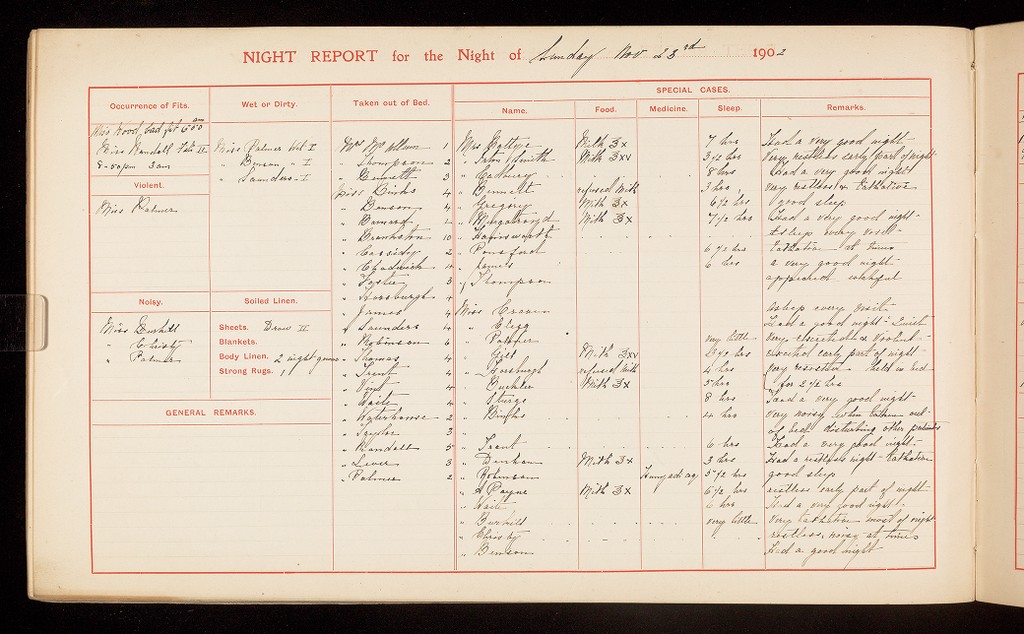 NIGHT REPORT for the Night of Sunday Nov 23rd 1902
Occurrence of Fits.
Miss Wood, bad fit 6.00 am
Miss Randall Fits II
8-50pm 3am
Violent.
Miss Palmer
Noisy.
Miss Burhill
" Christy
" Palmer
Wet or Dirty.
Miss Palmer Wet I
" Benson " I
" Saunders - I
Soiled Linen.
Sheets. Draw II
Blankets.
Body Linen. 2 night gowns
Strong Rugs. 1
GENERAL REMARKS.
Taken out of Bed.
Mrs 1
" Thompson 2
" Bennett 3
Miss Binks 4
" Benson 4
" Barnard 4
" 10
" Cassidy 2
" Chadwick 4
" Foster 3
" Horsburgh 4
" James 4
" Saunders 4
" Robinson 6
" Thomas 4
" Trent 4
" Vint 4
" Waite 4
" Waterhouse 2
" Taylor 3
" Randall 5
" Lever 3
" Palmer 2
SPECIAL CASES.
Name. Food. Medicine. Sleep. Remarks.
Mrs Milk 3x 7 hrs Had a very good night
" Smith Milk 3xv 3½ hrs Very restless early part of night
" Cadbury 8 hrs Had a very good night
" Bennett refused milk 3 hrs, very restless & talkative
" Gregory Milk 3x 6½ hrs good sleep
" Murgatroyd Milk 3x 7½ hrs Had a very good night
" Hainsworth asleep every visit
" Ponsford 6½ hrs talkative at times
" James 6 hrs a very good night
" Thompson appeared wakeful
Miss Craven asleep every visit
" Clegg Had a good night - Quiet
" Palmer very little Very &
" Gill Milk 3xv 5½ hrs early part of night
" Horsburgh refused milk 4 hrs very resistive held in bed
" Bucklee Milk 3x 5 hrs for 2½ hrs
" Sturge 8 hrs Had a very good night
" Binks 4 hrs very noisy, when taken out
of bed disturbing other patients
" Trent 6 hrs Had a very good night
" Denham Milk 3x 3 hrs Had a restless night - talkative
" Robinson 5½ hrs good sleep
" Payne Milk 3x 6½ hrs restless early part of night
" Waite 6 hrs Had a very good night
" Burhill very little Very talkative most of night
" restless, noisy at times
" Benson Had a good night